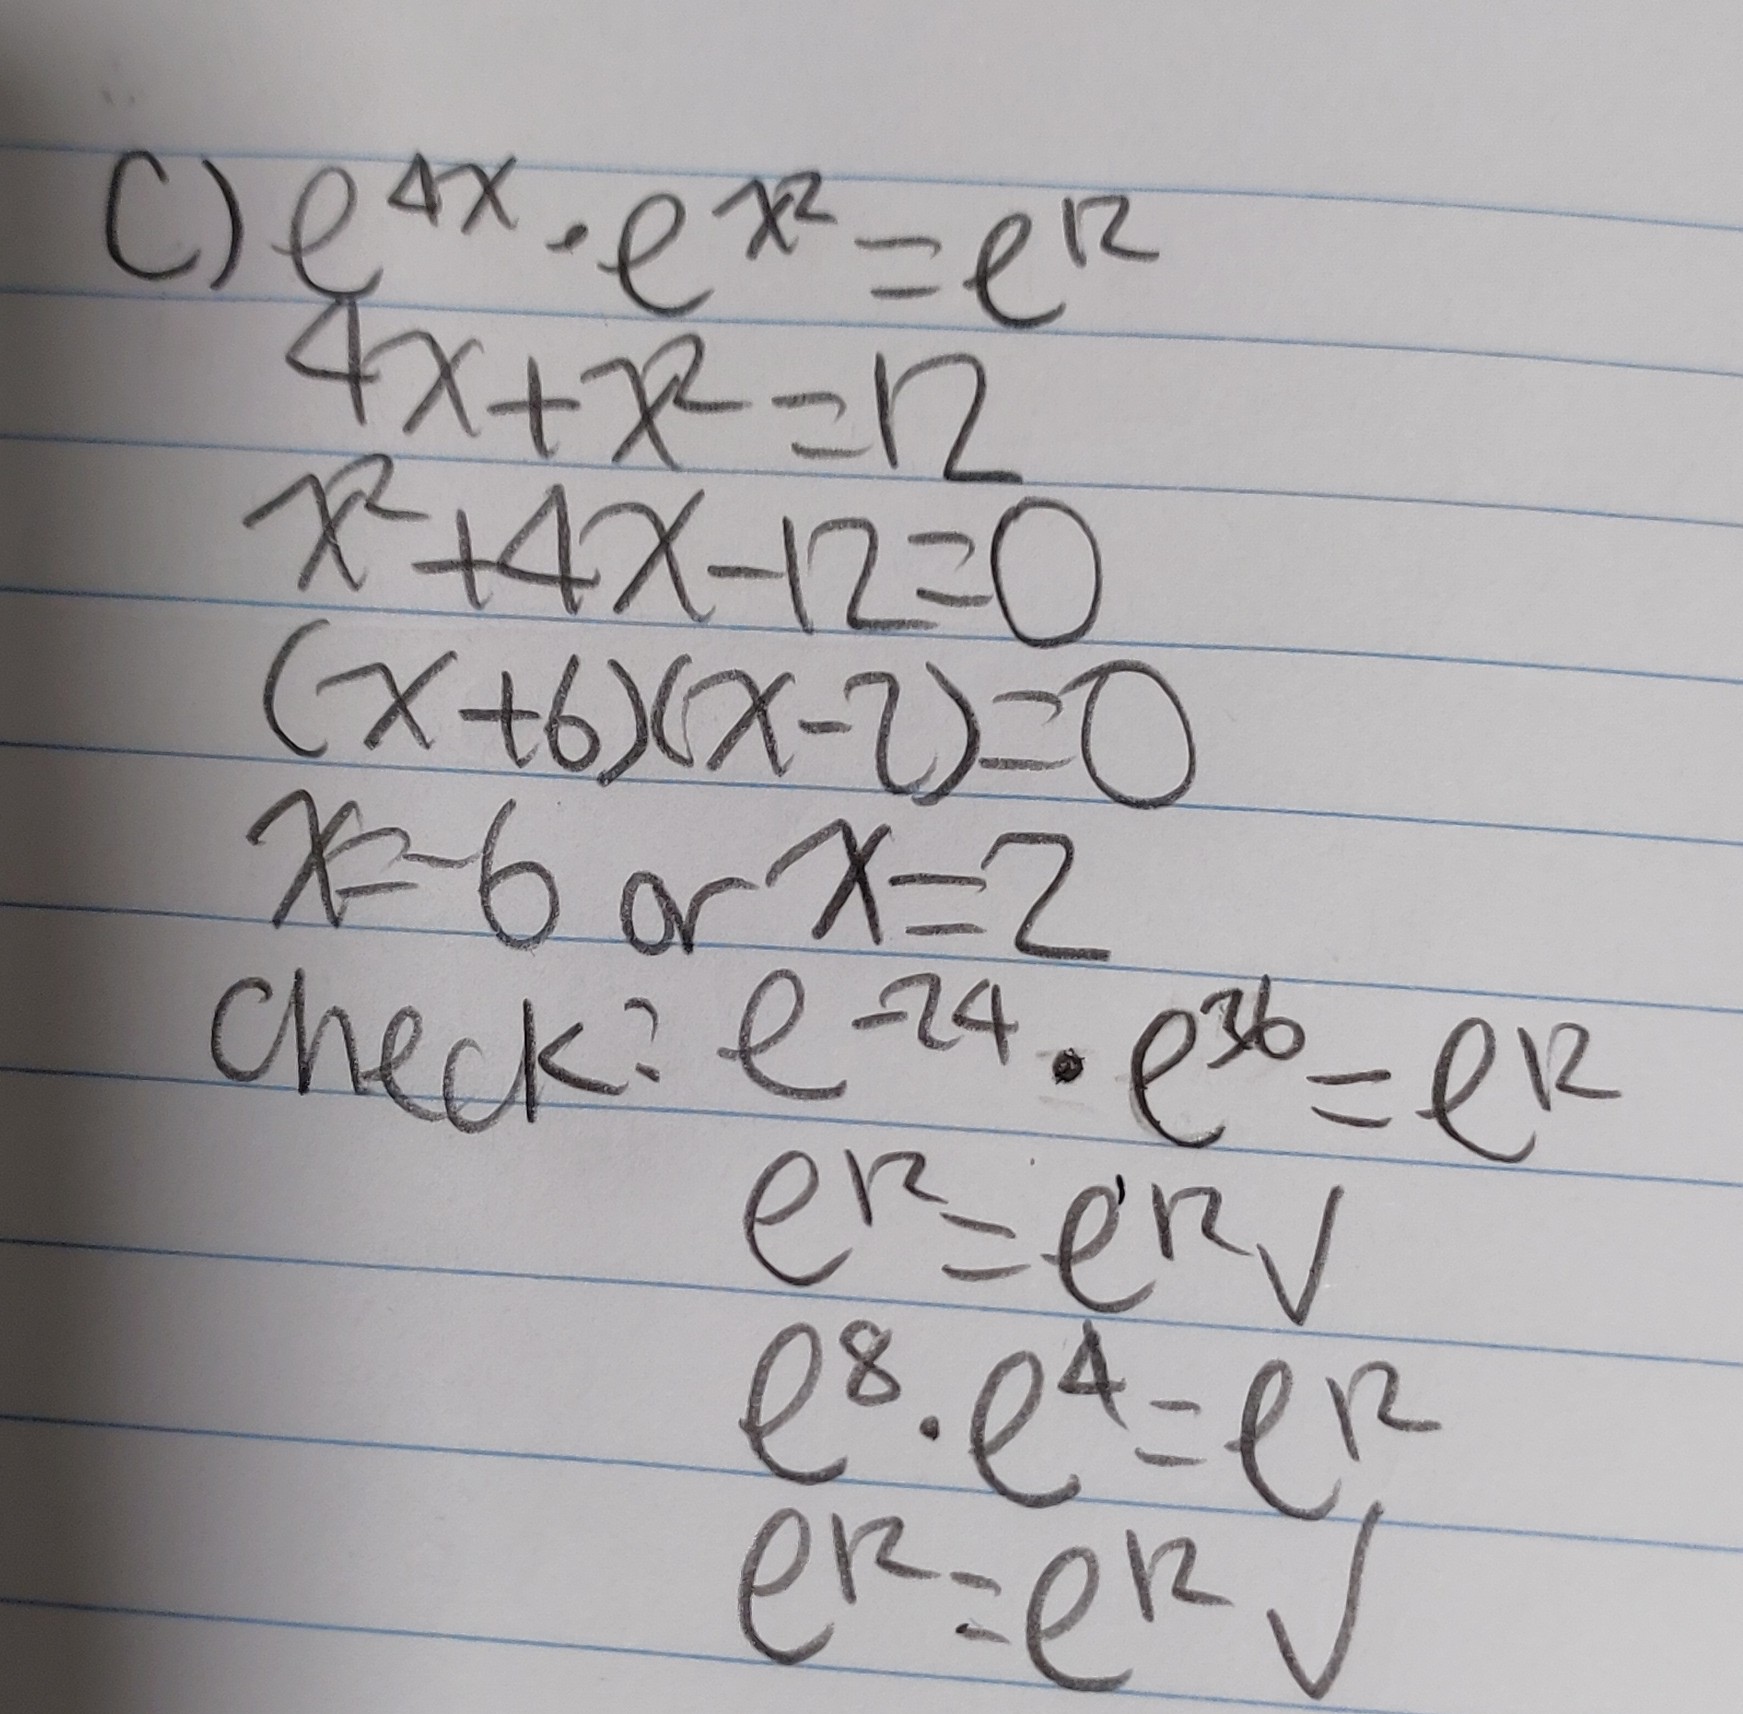 C) e^4x · e^x² = e^12
4x+x²=12
x²+4x-12=0
(x+6)(x-2)=0
x=-6 or x=2
Check: e^-24 · e^36 = e^12
e^12 = e^12 √
e^8 · e^4 = e^12
e^12 = e^12 √